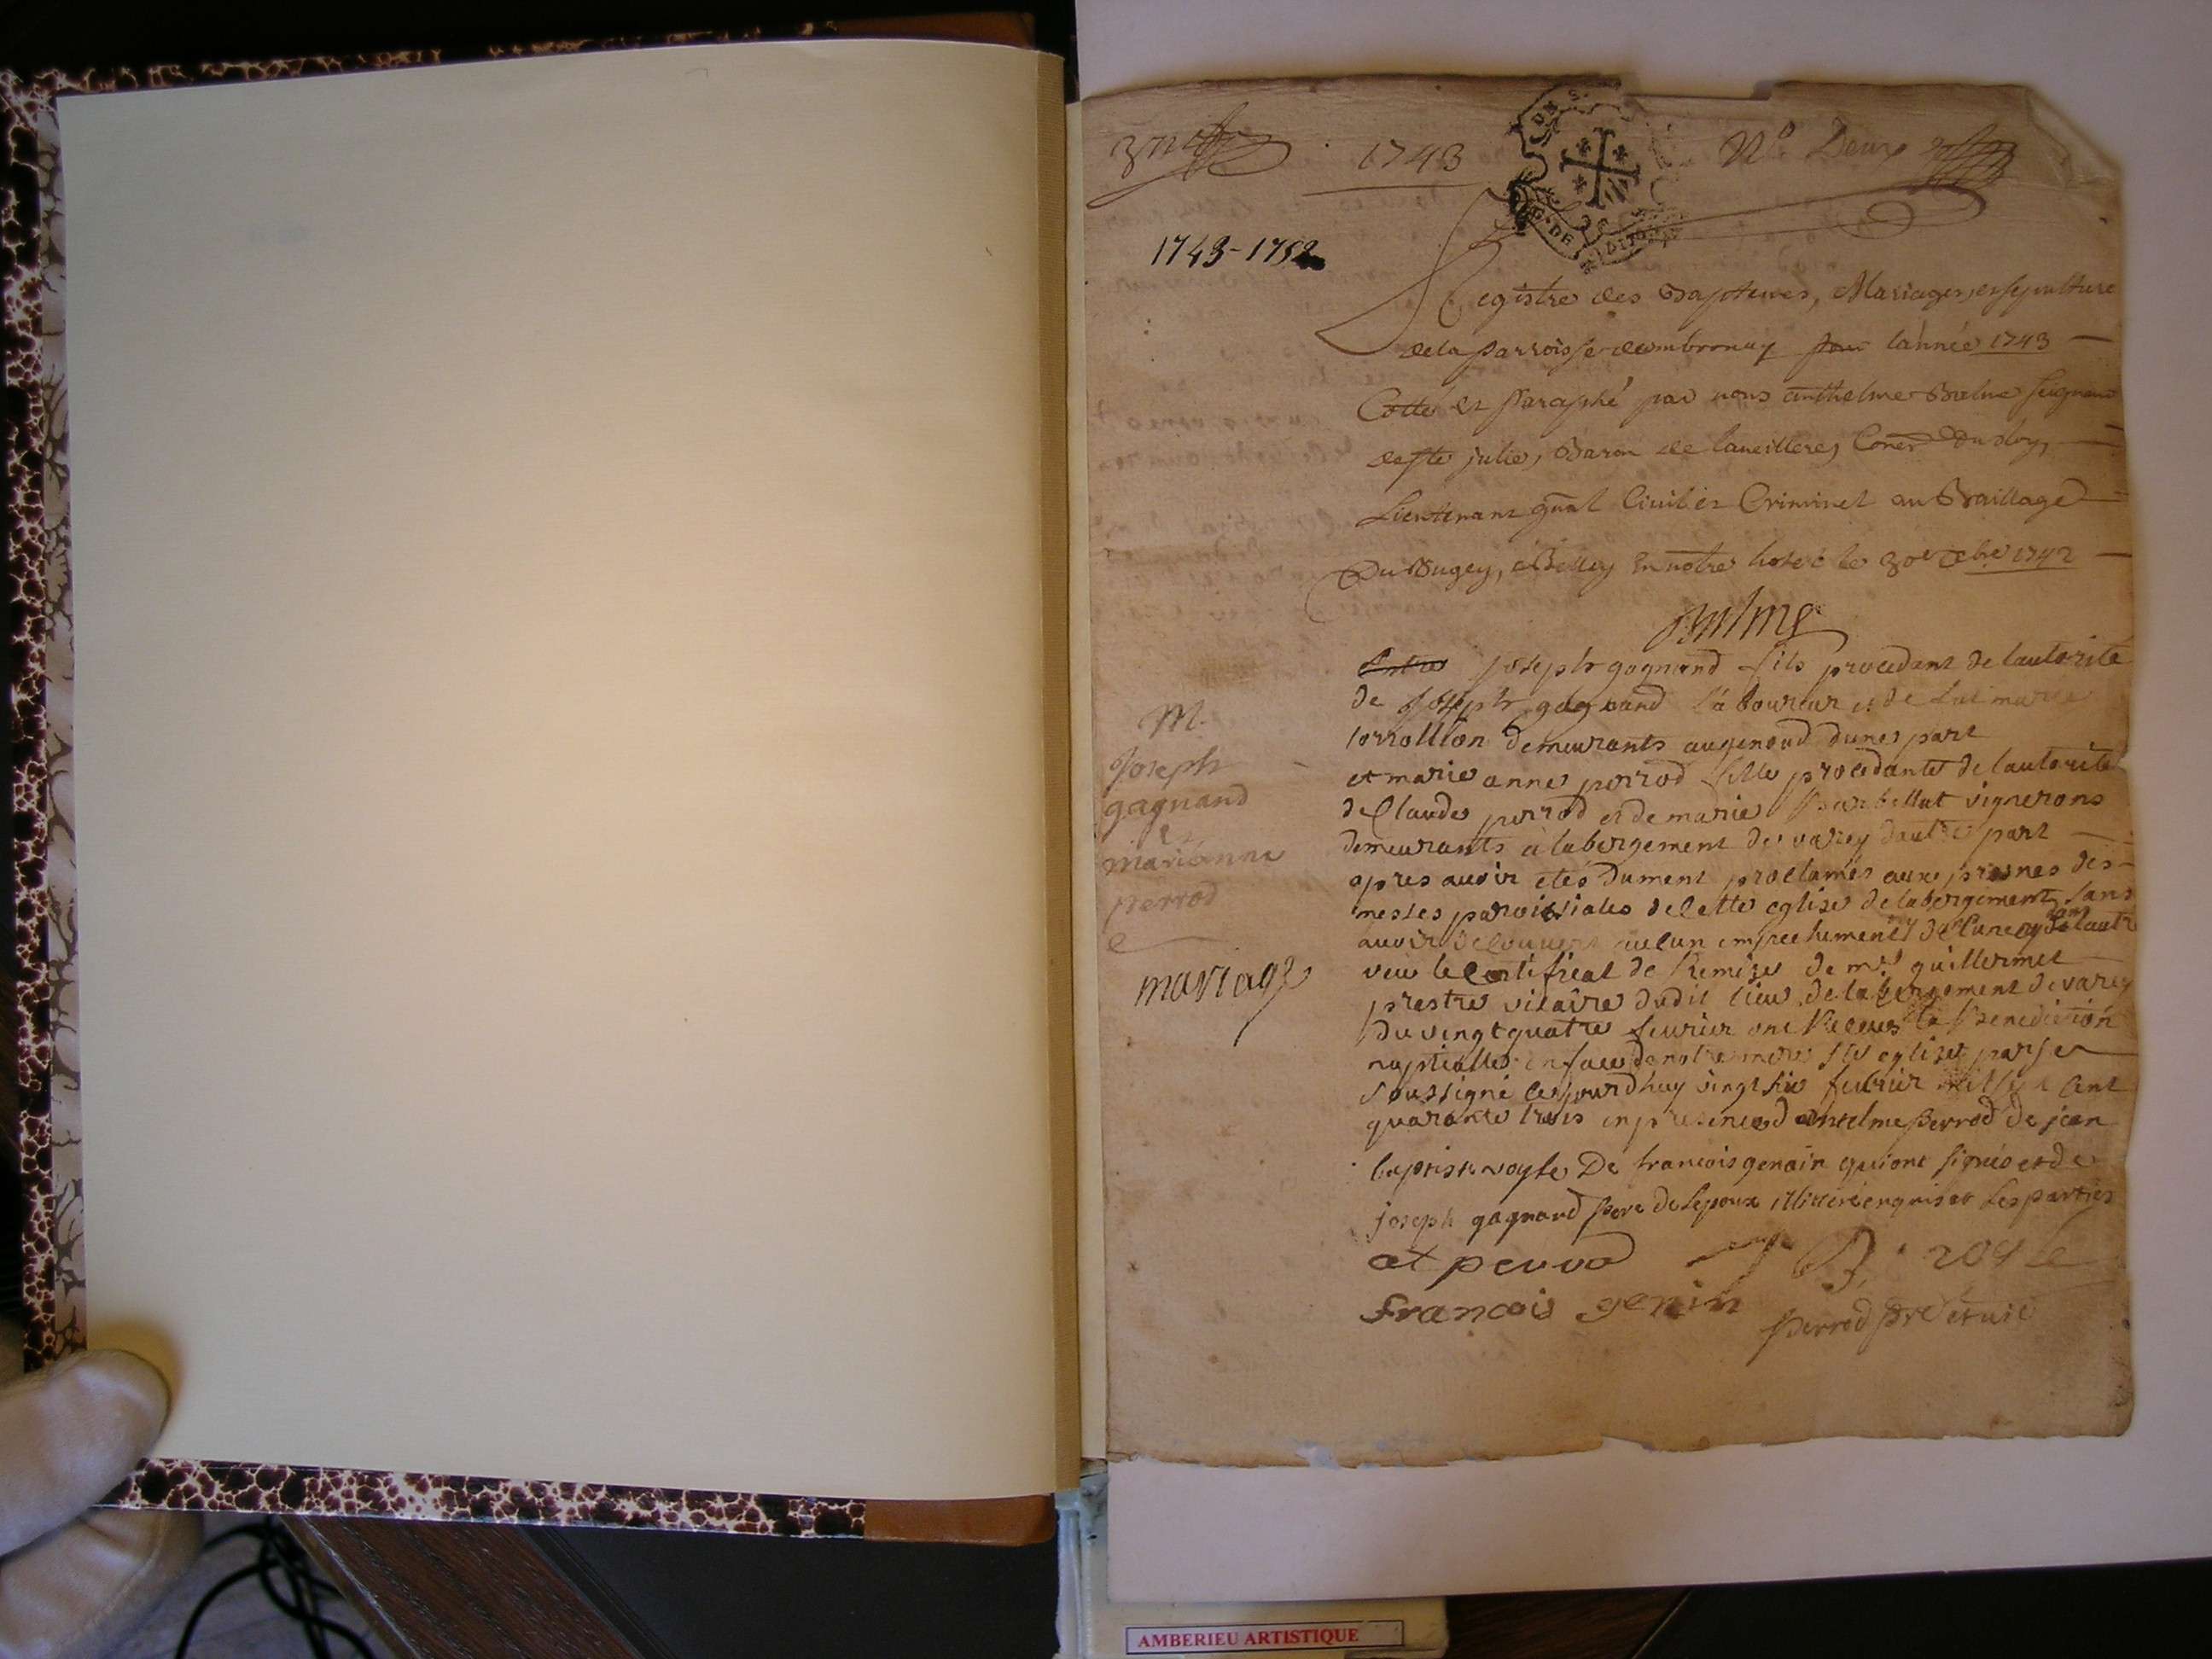 1743
N.o Deux
1743-1752
Registre des Baptemes, Mariages, et sepulture
de la parroisse dambronay pour lannée 1743
Cotté et Paraphé par nous anthelme Balme seigneur
de ste julie, Baron de Coner du Roy,
Lieutenant gnal Civil et Criminel au Baillage
Du Bugey, à Belley En notre hotel le 30e Xbre 1742
Balme
M.
Joseph
gagnand
et
marianne
perrod
mariage
Entre Joseph gagnand fils procedant de lautorite
de Joseph gagnand laboureur et de marie
demeurants au genoud dunes part
et marie anne perrod fille procedante de lautorite
de Claude perrod et de marie vignerons
demeurants a labergement de varey dautre part
apres avoir etés dument proclamés aux prosnes des
messes paroissiales de cette eglise de labergement sans
avoir decouvert aucun empechement de lune ny de lautre
veu le Certificat de Remise de mre guillermet
prestre vicaire dudit lieu de labergement de varey
du vingtquatre fevrier ont Receus la Benediction
nuptialle en face de notre mere ste eglise par je
soussigné cejourdhuy vingt six fevrier mille cent
quarante trois en presence d antelme perrod de jean
baptiste de francois genain qui ont signés et de
joseph gagnand pere de lepoux illiteré enquis et les parties
at perrod
J B
francois genin
perrod pre et curé
AMBERIEU ARTISTIQUE